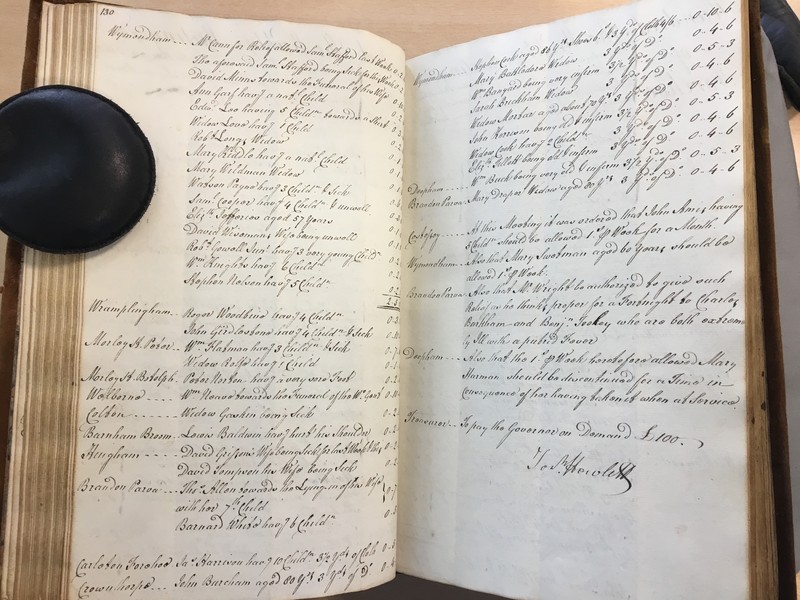 130
Wymondham --- Mr Cann for Relief allowed Saml Stafford last Week
The aforesaid Saml Stafford being Sick for this Week 0-2
David Minns towards the Funeral of his Wife
Ann Garf havg a natl Child
Edwd Lee having 5 Childn towards a Shirt
Widow Love havg 1 Child
Robt Long's Widow
Mary Riddle havg a natl Child
Mary Wildman Widow
Watson Payne havg 3 Childn & Sick
Saml Cooper havg 4 Childn & unwell
Elizth Jefferies aged 57 years
David Wiseman's Wife being unwell
Robt Howell Junr havg 3 very young Childn
Wm Knights havg 6 Childn
Stephen Nelson havg 5 Childn
Wramplingham -- Roger Woodbine havg 4 Childn
John Girdlestone havg 4 Childn & Sick
Morley St. Peter -- Wm Flatman havg 3 Childn & Sick
Widow Rolfe havg 1 Child
Morley St. Botolph - Peter Norton havg a very sore Foot
Welborne ---- Wm Neave towards the Funeral of the
Colton ----- Widow Gaskin being Sick
Barnham Broom -- Lewis Baldwin havg hurt his Shoulder
Hingham ---- David Wife being Sick for last Week & this
David Simpson his Wife being Sick
Brandon Parva -- Thos Allen towards the Lying in of his Wife
with her 7th Child 0-7
Barnard White havg 6 Childn
Carleton Forehoe Jas Harrison havg 10 Childn 3 1/2 Yds of Cloth
Crownthorpe --- John Burcham aged 80 Yrs 3 Yds of Do
Wymondham --- Stephen Cook aged 86 Yrs Shoes 6s & 3 Yds of Cloth 4/6 -- 0-10-6
Mary Widow 3 Yds of Do 0-4-6
Wm Banyard being very infirm 3 1/2 Yds of Do 0-5-3
Sarah Buckham Widow 3 Yds of Do 0-4-6
Widow Morter aged about 70 Yrs 3 Yds of Do 0-4-6
John Harrison being old & infirm 3 1/2 Yds of Do 0-5-3
Widow Cook havg 2 Childn 3 Yds of Do 0-4-6
Elizth Pillett being old & infirm 3 Yds of Do 0-4-6
Deopham --- Wm Buck being very old & infirm 3 1/2 Yds of Do 0-5-3
Brandon Parva -- Mary Draper Widow aged 80 Yrs 3 Yds of Do 0-4-6
Costessy --- At this Meeting it was ordered that John Ames having
5 Childn should be allowed 1s p Week for a Month
Wymondham -- Also that Mary Swotman aged 60 Years should be
allowed 1s p Week
Brandon Parva -- Also that Mr Wright be authorized to give such
Relief as he thinks proper for a Fortnight to Charles
Barkham and Benjn Tooley who are both extreme
ly Ill with a putrid Fever
Deopham --- Also that the 1s p Week heretofore allowed Mary
Harman should be discontinued for a Time in
Consequence of her having taken it when at Service
Treasurer -- To pay the Governor on Demand £100.
Jos. Hewlett